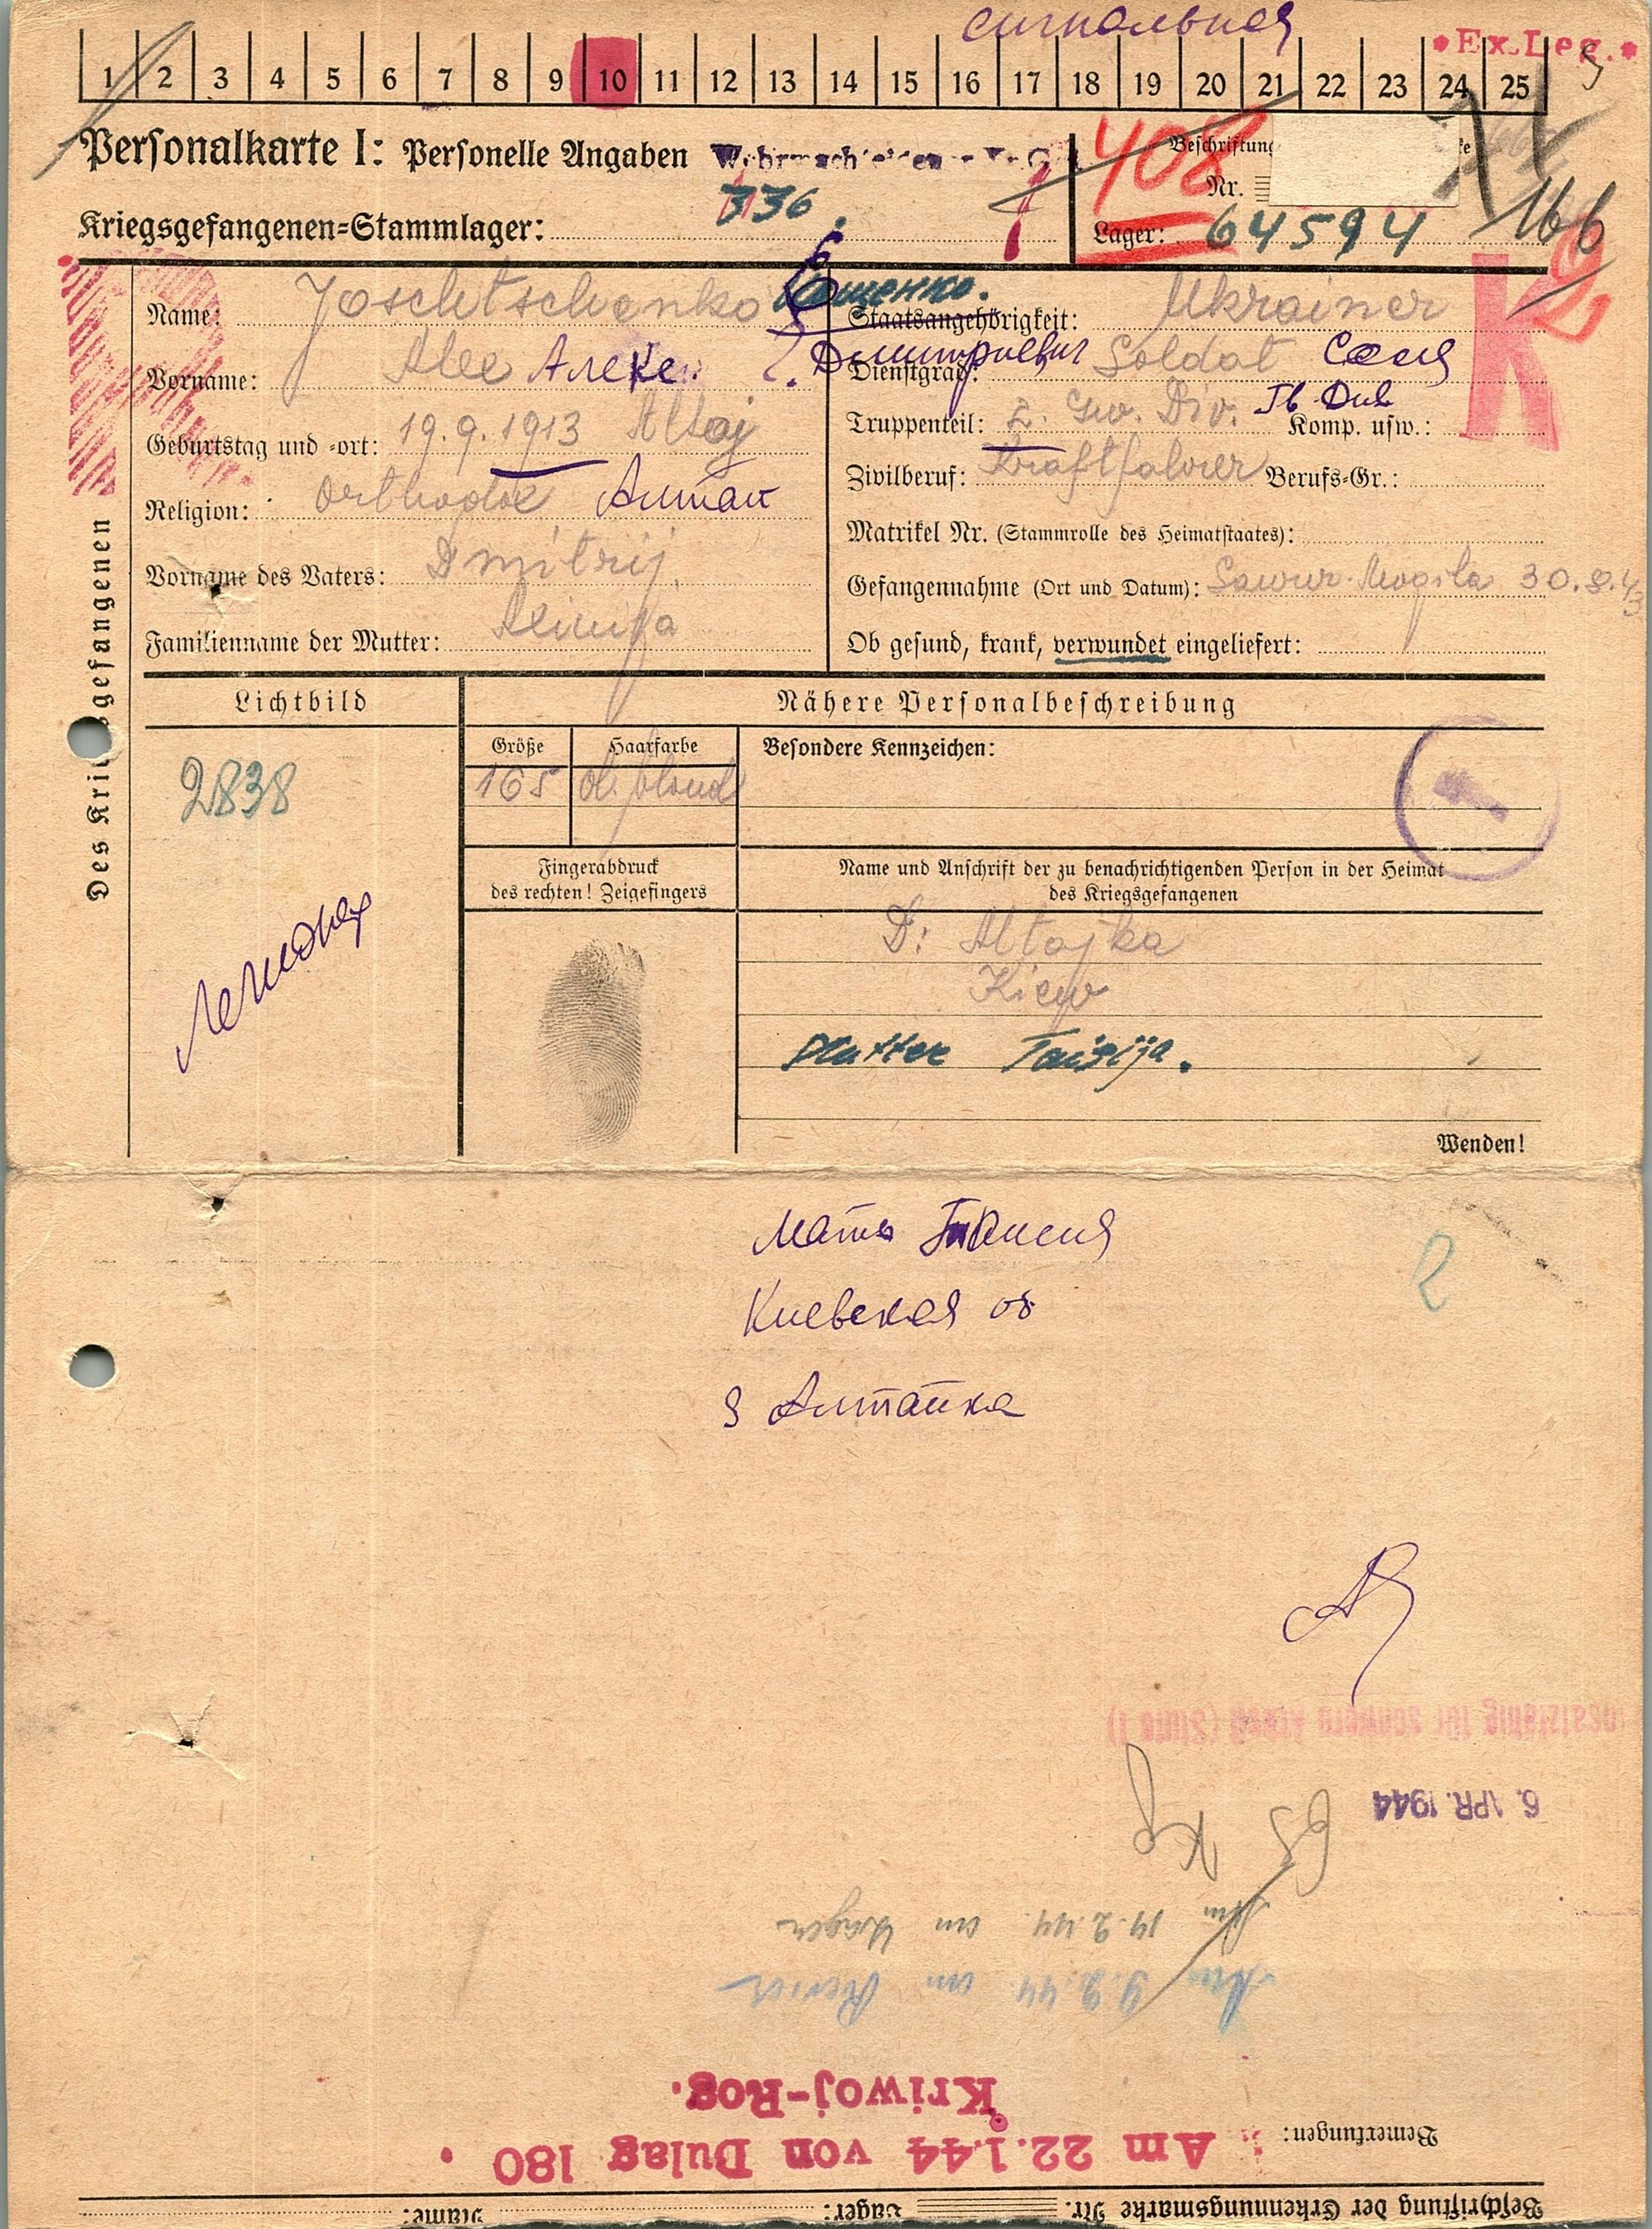 сигнальная
*Ex.Leg.*
1 2 3 4 5 6 7 8 9 10 11 12 13 14 15 16 17 18 19 20 21 22 23 24 25
Personalkarte I: Personelle Angaben
408
Beschriftung
Nr.
336.
Kriegsgefangenen=Stammlager:
Lager: 64594
166
Des Kriegsgefangenen
K
Name: Joschtschenko
Vorname: Alex Алекс
Дмитриевич
Geburtstag und =ort: 19.9.1913 Altaj
Religion: Orthodox Алтай
Vorname des Vaters: Dmitrij
Familienname der Mutter:
Staatsangehörigkeit: Ukrainer
Dienstgrad: Soldat
Truppenteil: 2. Gw. Div. Гв Див Komp. usw.:
Zivilberuf: Kraftfahrer Berufs=Gr.:
Matrikel Nr. (Stammrolle des Heimatstaates):
Gefangennahme (Ort und Datum): Sawur-Mogila 30.8.43
Ob gesund, krank, verwundet eingeliefert:
Lichtbild
2838
Nähere Personalbeschreibung
Größe
Haarfarbe
Besondere Kennzeichen:
165 d. blond
Fingerabdruck
des rechten! Zeigefingers
Name und Anschrift der zu benachrichtigenden Person in der Heimat
des Kriegsgefangenen
D: Altajka
Kiew
Mutter Taisija.
Wenden!
Мать Таисия
Киевская об
Алтайка
2
6. APR. 1944
Am 14.2.44 an Lager
Am 9.2.44 an Revier
Am 22.1.44 von Dulag 180
Kriwoj-Rog.
Bemerkungen:
Beschriftung der Erkennungsmarke Nr. Lager: Name: